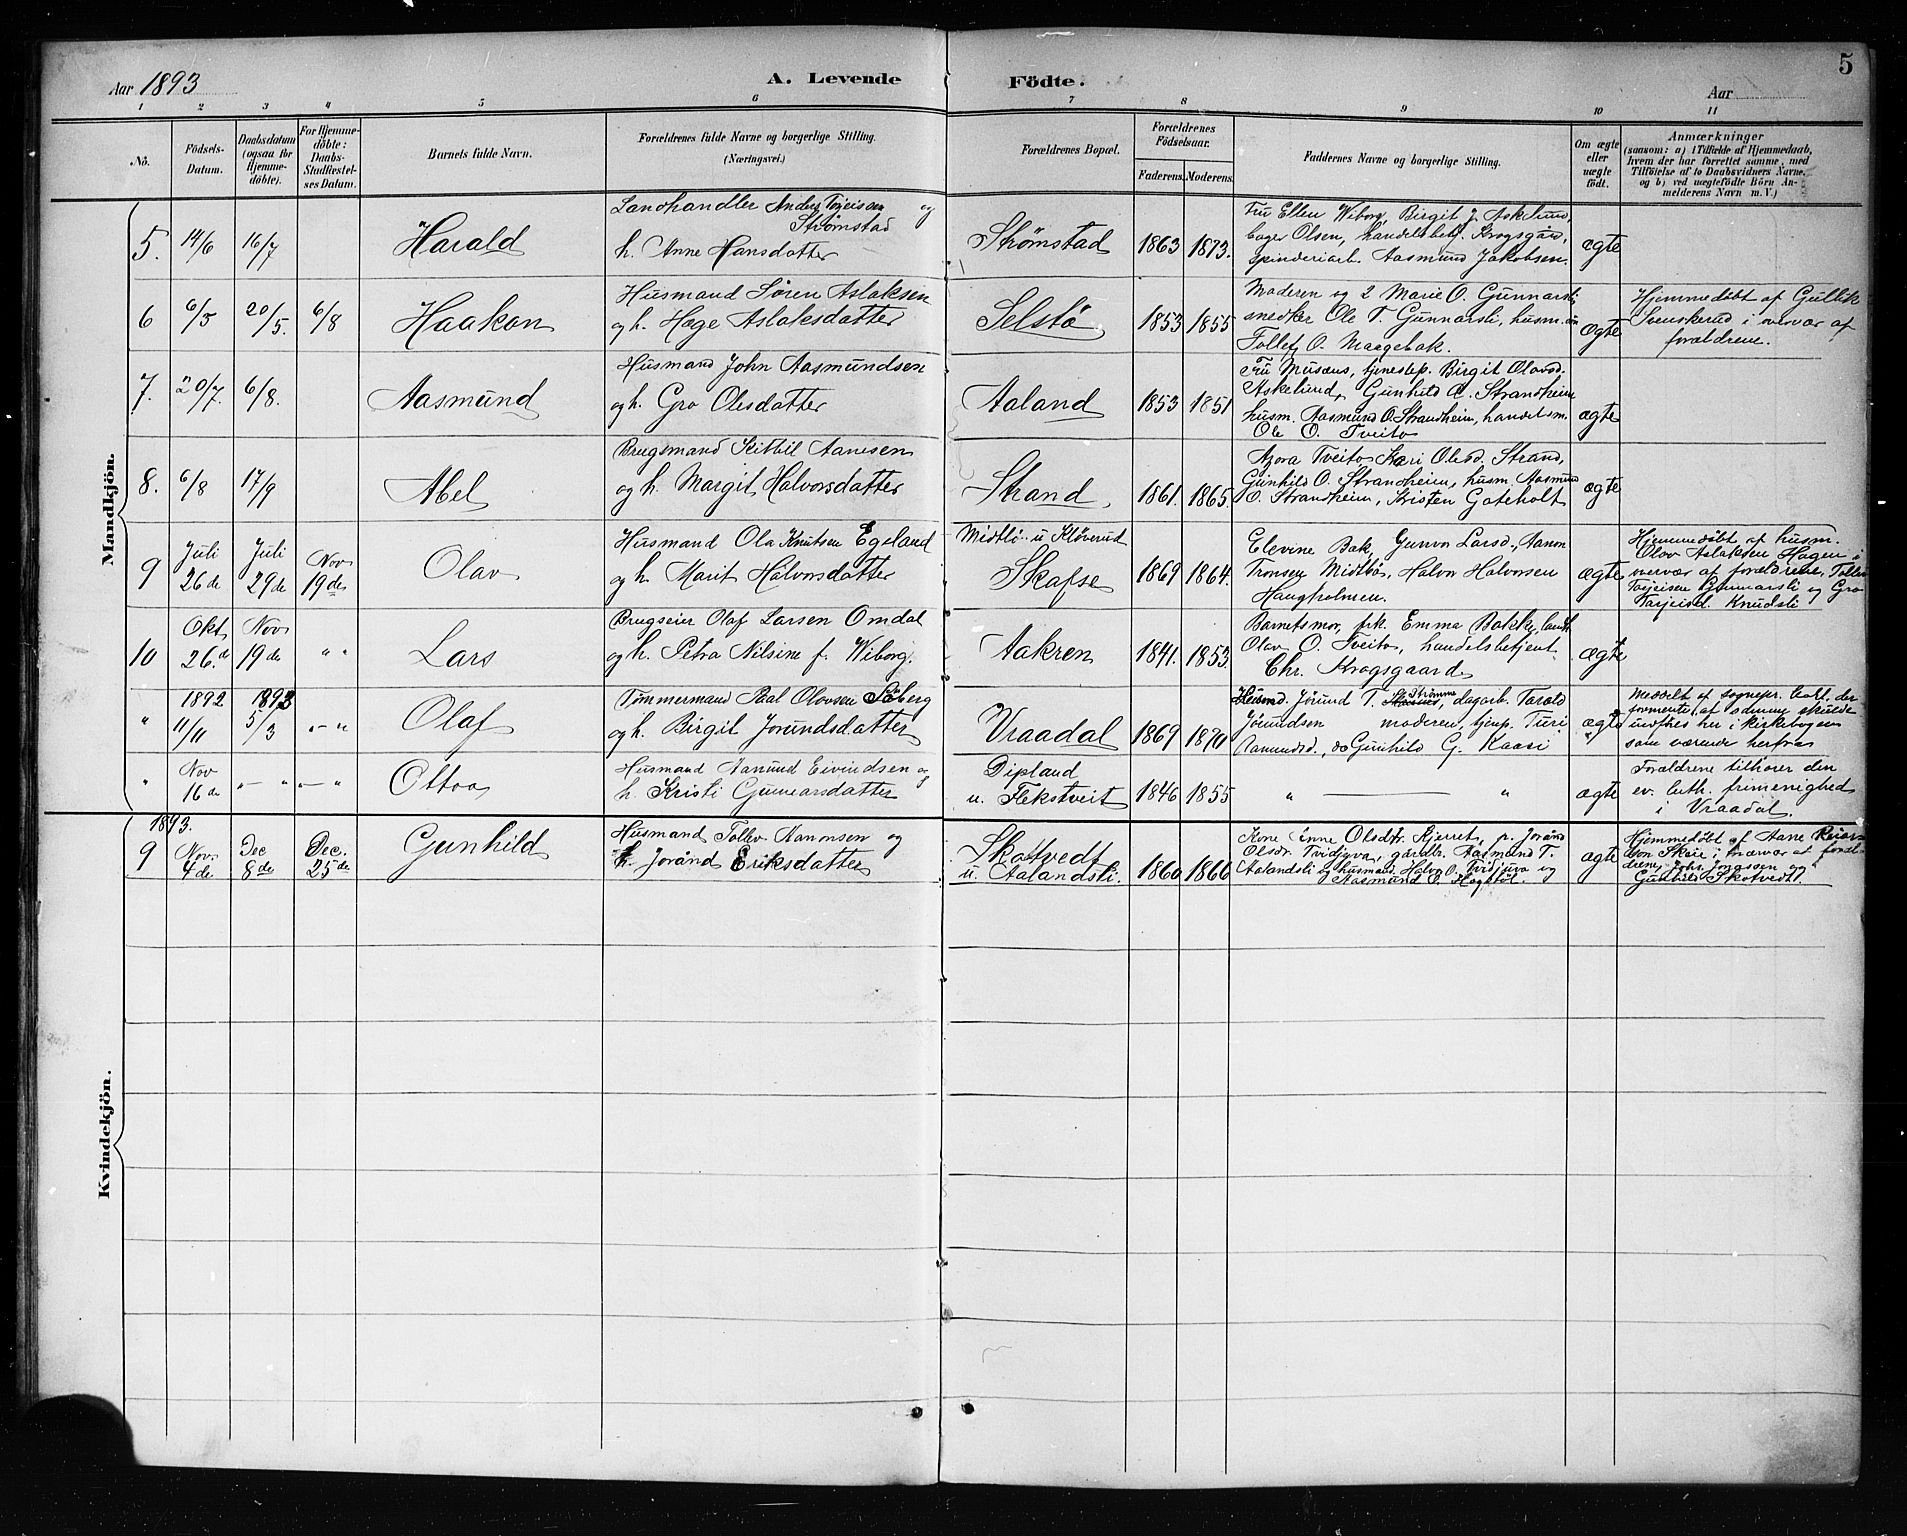 5
Aar 1893
A. Levende Födte.
Aar
1 2 3 4 5 6 7 8 9 10 11
No.
Födsels-
Datum.
Daabsdatum
(ogsaa for
Hjemme-
döbte).
For Hjemme-
döbte:
Daabs-
Stadfæstel-
ses Datum.
Barnets fulde Navn.
Forældrenes fulde Navne og borgerlige Stilling.
(Næringsvei.)
Forældrenes Bopæl.
Forældrenes
Födselsaar.
Faderens. Moderens.
Faddernes Navne og borgerlige Stilling.
Om ægte
eller
uægte
födt.
Anmærkninger
(saasom: a) i Tilfælde af Hjemmedaab,
hvem der har forrettet samme, med
Tilföielse af to Daabsvidners Navne.
og b) ved uægtefödte Börn An-
melderens Navn m. V.)
Mandkjön.
5. 14/6 16/7 Harald
Landhandler Anders Torjeissen og
Strømstad
h. Anne Hansdatter
Strømstad 1863 1873.
Fru Ellen Wiborg, Birgit J. Askelund,
Olsen, handelsbetj. Krogsgård,
spinderiarb. Aasmund Jakobsen.
ægte
6 6/5 20/5. 6/8 Haakon
Husmand Søren Aslaksen
og h. Hæge Aslaksdatter
Selstø 1853 1855
Moderen og 2 Marie O. Gunnarsli
snedker Ole T. Gunnarsli, husm.
Tollef O. Maagebak.
ægte
Hjemmedøbt af Gullik
Svenskerud i overvær af
forældrene.
7. 20/7. 6/8. Aasmund
Husmand John Aasmundsen
og h. Gro Olesdatter
Aaland 1853 1851
Fru Musæus, tjenestep. Birgit Olavsd.
Askelund, Gunhild A. Strandheim
husm. Aasmund O. Strandheim, handelsm.
Ole O. Tveito
ægte
8. 6/8 17/9 Abel
Brugsmand Kittill Aanesen
og h. Margit Halvorsdatter
Strand 1861. 1865.
Azora Tveito Kari Olesd. Strand,
Gunhild O. Strandheim, husm. Aasmund
O. Strandheim, Kristen Gateholt
ægte
9 Juli
26de Juli
29de Nov
19de Olav
Husmand Ola Knutsen Egeland
og h. Marit Halvorsdatter
Midtbø u Kløverud
Skafse 1869 1864.
Elevine Bak, Gunvor Larsd., Aanon
Tronsen Midtbø, Halvor Halvorsen
Haugholmen.
ægte
Hjemmedøbt af husm.
Olov Aslaksen Hagen i
overvær af forældrene, Tollev
Tarjeisen Gunnarsli og Gro
Tarjeisd. Knudsli
10 Okt
26.de Nov
19de " " Lars
Brugseier Olaf Larsen Omdal
og h. Petra Nilsine f. Wiborg.
Aakren 1841. 1853
Barnets mor, frk. Emma Bakke, landh.
Olav O. Tveito, handelsbetjent
Chr. Krogsgaard
ægte
" 1892
11/11 1893
5/3 " " Olaf
Tømmermand Paal Olavsen Søberg
og h. Birgit Jorundsdatter
Vraadal 1869 1870
Husmd. Jörund T. Strømme, dagarb. Tarald
Jörundsen moderen, tjenp. Turi
Aamundsd, do Gunhild G. Kaasi
ægte
Meddelt af sognepr. der
formente, at samme skulde
indføres her i kirkebogen
som værende herfra
" Nov
16de " " " " Ottoa
Husmand Aanund Eivindsen og
h. Kristi Gunnarsdatter
Dipland
u. Flekstveit 1846 1855
" "
ægte
Forældrene tilhører den
ev. luth. frimenighed
i Vraadal.
Kvindekjön.
1893.
9 Nov.
4de Dec
8de Dec.
25de Gunhild
Husmand Tollev Aanonsen og
h. Jorånd Eriksdatter
Skottvedt
u. Aalandsli. 1860 1866
Kone Anne Olsdtr. Kjerret, p. Jorånd
Olsdr. Tvidjuva, gårdbr. Aasmund T.
Aalandsli og husmænd. Halvor O. Tvidjuva og
Aasmund O. Høgstøl.
ægte
Hjemmedøbt af Aane Reiars-
son Skeie i nærvær af foræl-
drene, Johs. Jonassen og
Gunhild Skotvedt.